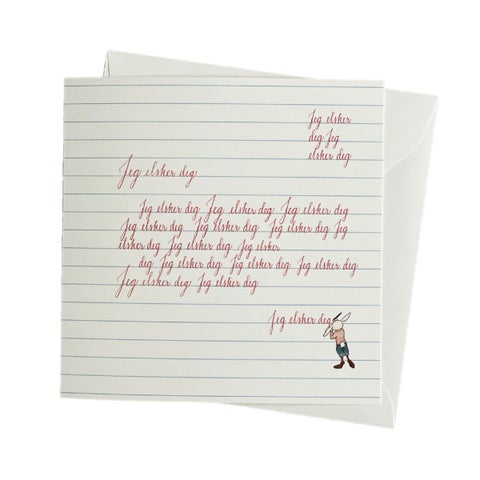 Jeg elsker
deg Jeg
elsker deg
Jeg elsker deg
Jeg elsker deg Jeg elsker deg Jeg elsker deg
Jeg elsker deg Jeg elsker deg Jeg elsker deg Jeg
elsker deg Jeg elsker deg Jeg elsker
deg Jeg elsker deg Jeg elsker deg Jeg elsker deg
Jeg elsker deg Jeg elsker deg
Jeg elsker deg